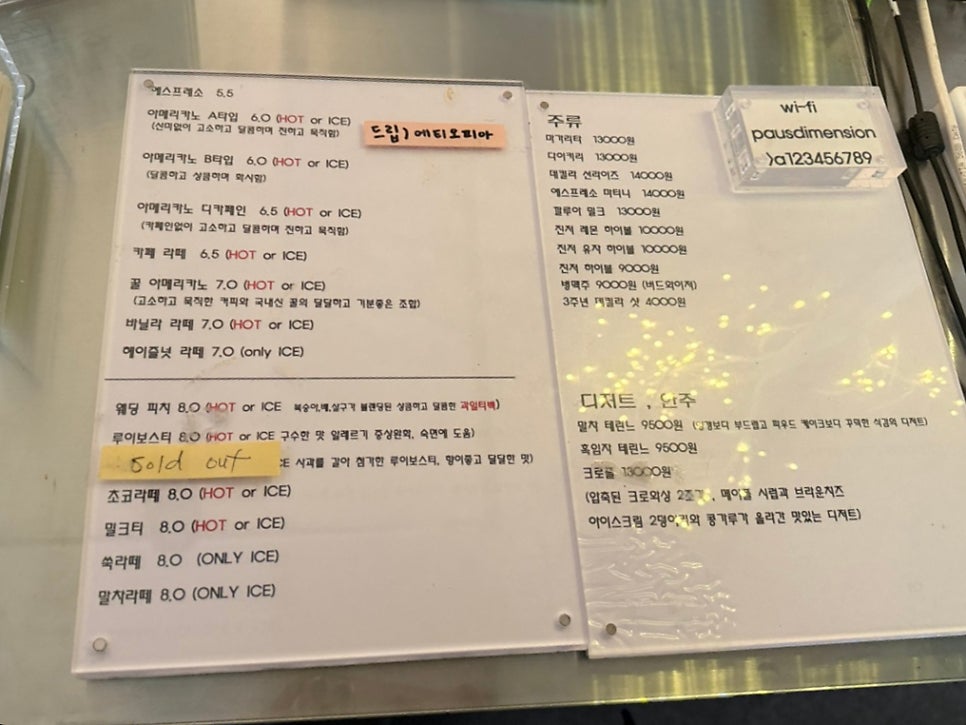 에스프레소 5.5
아메리카노 A타입 6.0 (HOT or ICE)
(산미없이 고소하고 달콤하며 진하고 묵직함)
드립) 에티오피아
아메리카노 B타입 6.0 (HOT or ICE)
(달콤하고 상큼하며 화사함)
아메리카노 디카페인 6.5 (HOT or ICE)
(카페인없이 고소하고 달콤하며 진하고 묵직함)
카페 라떼 6.5 (HOT or ICE)
꿀 아메리카노 7.0 (HOT or ICE)
(고소하고 묵직한 커피와 국내산 꿀의 달달하고 기분좋은 조합)
바닐라 라떼 7.0 (HOT or ICE)
헤이즐넛 라떼 7.0 (only ICE)
웨딩 피치 8.0 (HOT or ICE 복숭아,배,살구가 블랜딩된 상큼하고 달콤한 과일티백)
루이보스티 8.0 (HOT or ICE 구수한 맛 알레르기 증상완화, 숙면에 도움)
Sold out
CE 사과를 갈아 첨가한 루이보스티, 향이좋고 달달한 맛)
초코라떼 8.0 (HOT or ICE)
밀크티 8.0 (HOT or ICE)
쑥라떼 8.0 (ONLY ICE)
말차라떼 8.0 (ONLY ICE)
wi-fi
pausdimension
)a123456789
주류
마가리타 13000원
다이키리 13000원
데킬라 선라이즈 14000원
에스프레소 마티니 14000원
깔루아 밀크 13000원
진저 레몬 하이볼 10000원
진저 유자 하이볼 10000원
진저 하이볼 9000원
병맥주 9000원 (버드와이저)
3주년 데킬라 샷 4000원
디저트 , 안주
말차 테린느 9500원 보다 부드럽고 파우드 케이크보다 꾸덕한 식감의 디저트)
흑임자 테린느 9500원
크로플 13000원
(압축된 크로와상 2조각, 메이플 시럽과 브라운치즈
아이스크림 2덩이리와 콩가루가 올라간 맛있는 디저트)